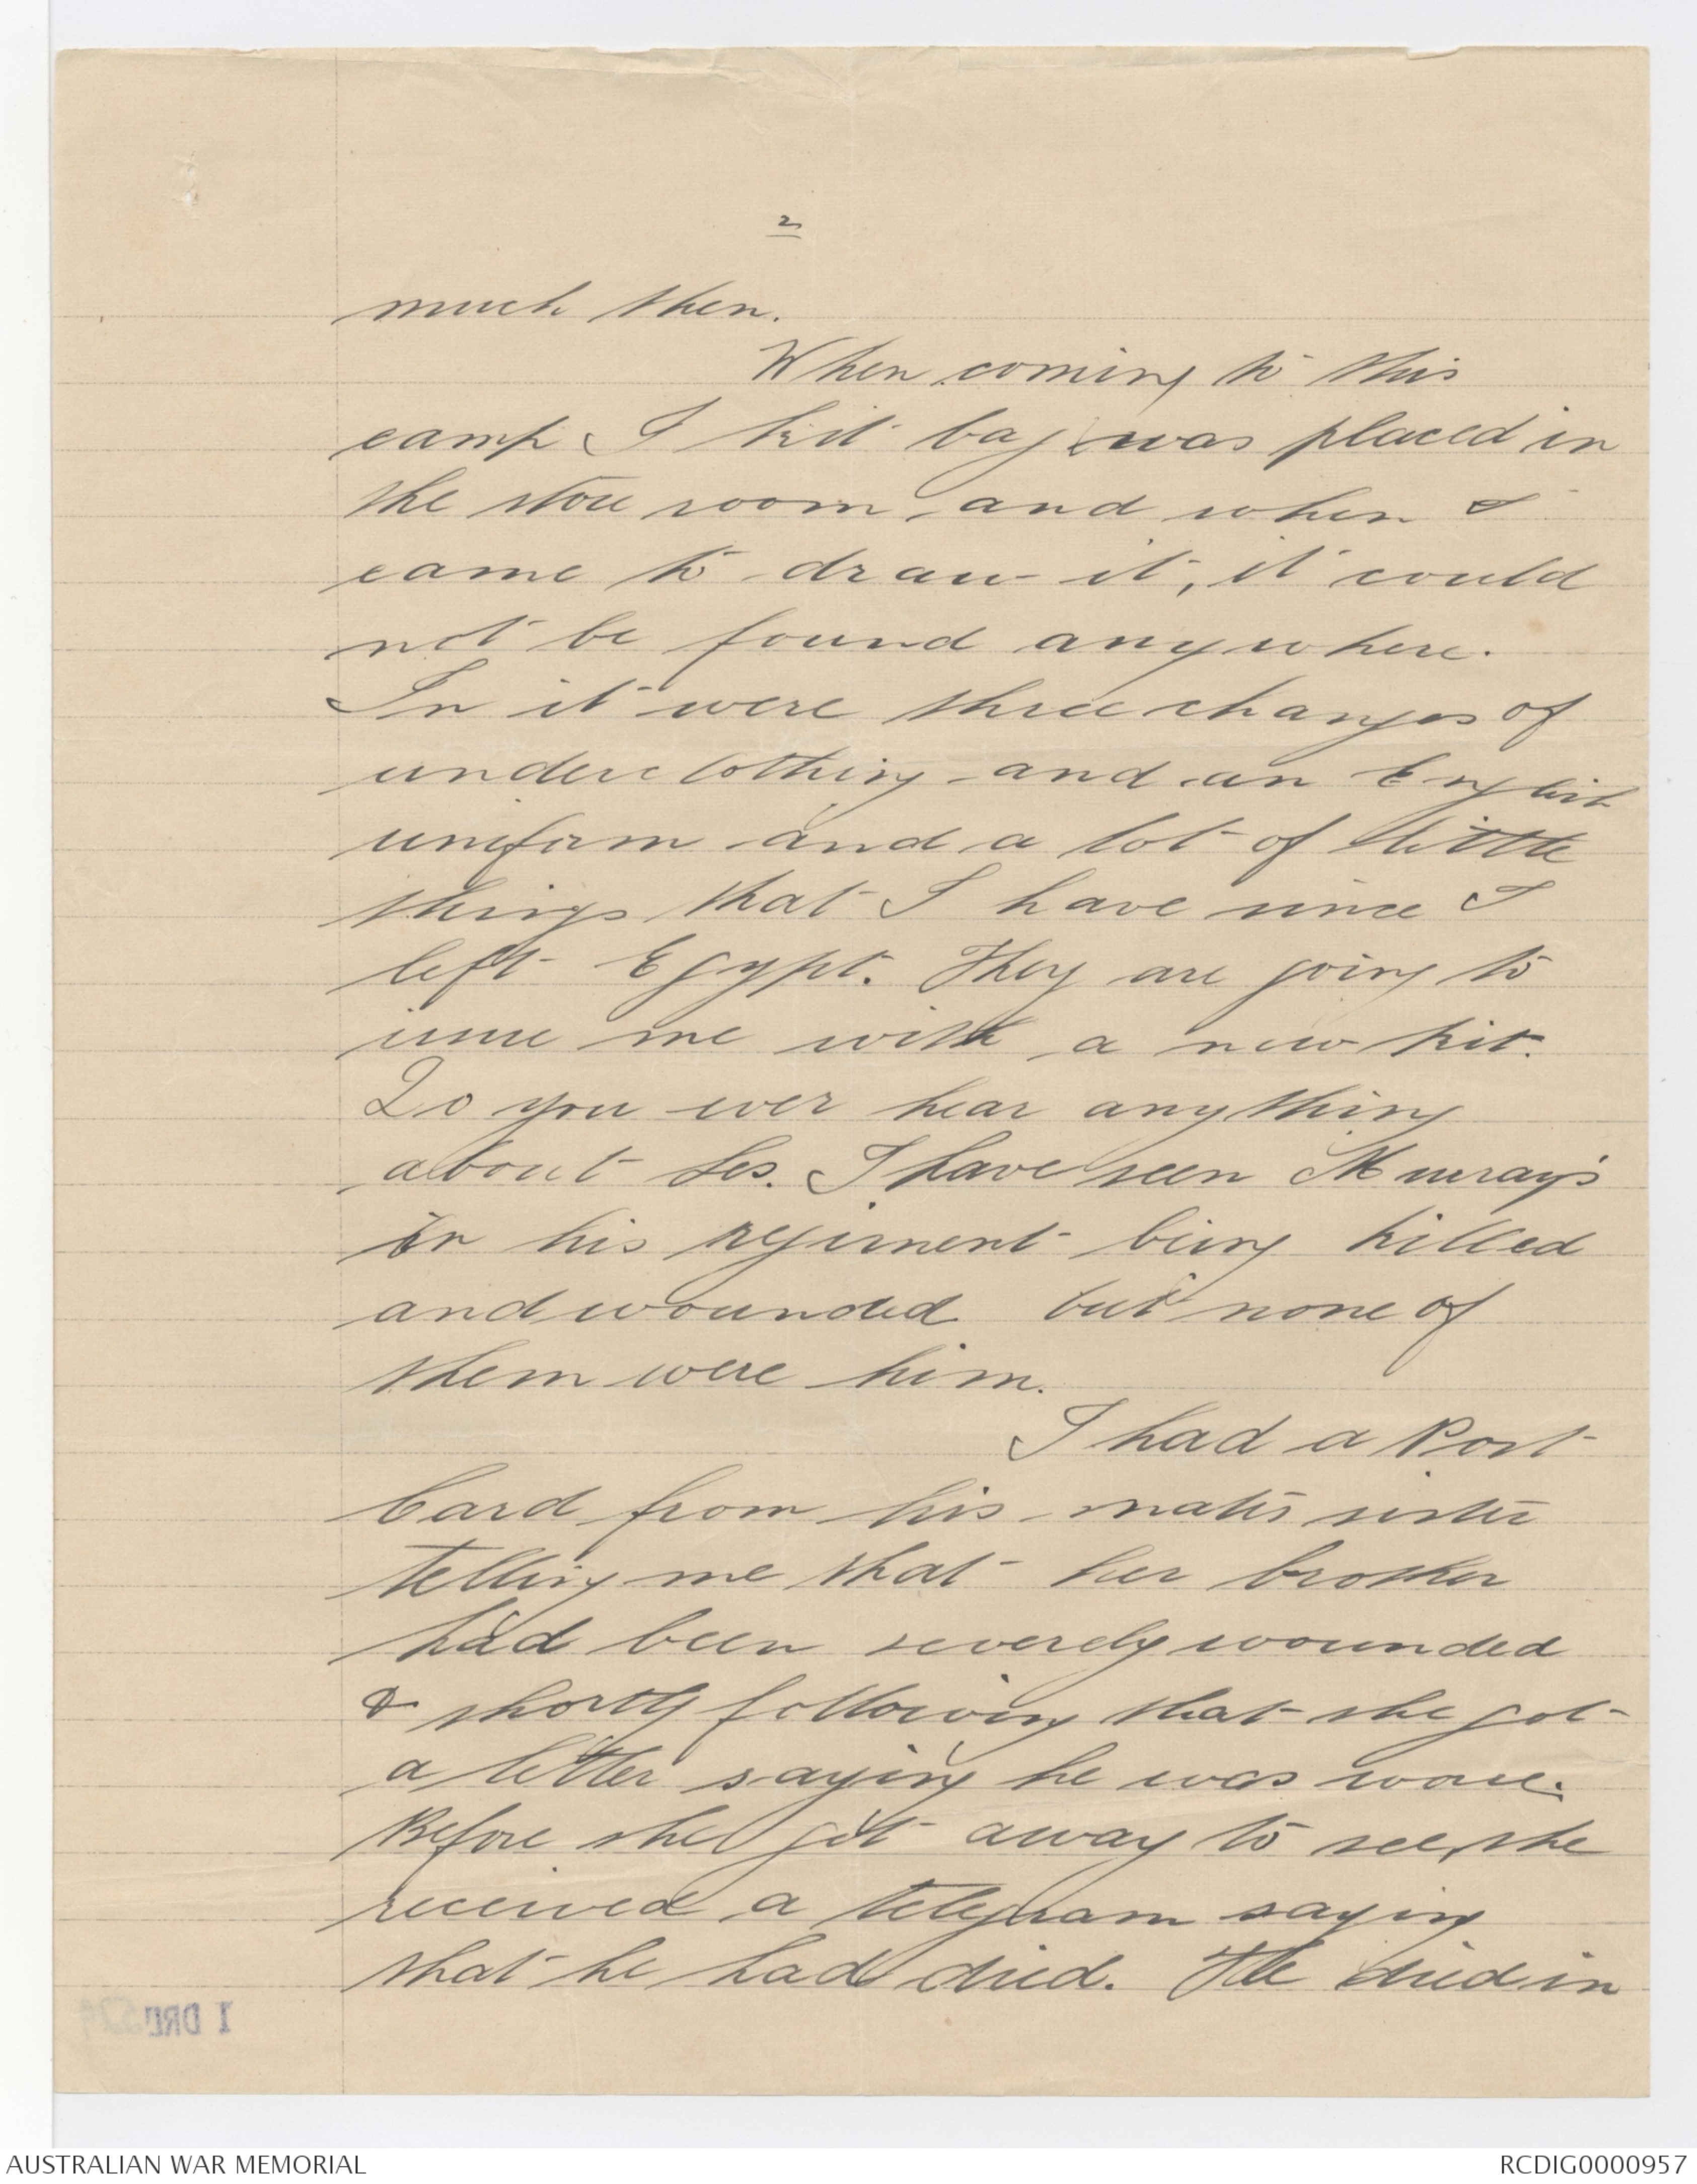 2
much then.
When coming to this
camp I kit bag was placed in
the store room and when I
came to draw it, it could
not be found anywhere.
In it were three changes of
underclothing and an English
uniform and a lot of little
things that I have since I
left Egypt. They are going to
issue me with a new kit.
Do you ever hear anything
about Les. I have seen Murray's
in his regiment being killed
and wounded but none of
them were him.
I had a Post
Card from his mate's sister
telling me that her brother
had been severely wounded
& shortly following that she got
a letter saying he was worse.
Before she got away to see, she
received a telegram saying
that he had died. He died in
1 DRL
AUSTRALIAN WAR MEMORIAL
RCDIG0000957